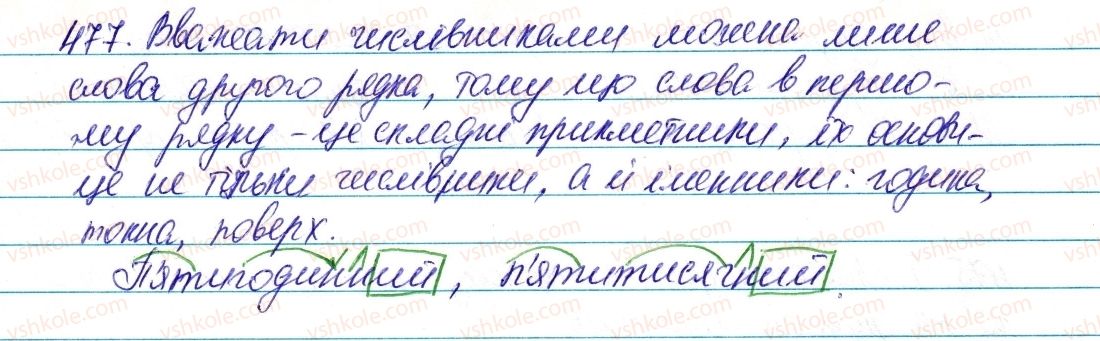 477. Вважати числівниками можна лише
слова другого рядка, тому що слова в першо-
му рядку - це складні прикметники, їх основи -
це не тільки числівники, а й іменники: година,
тонна, поверх.
П'ятигодинний, п'ятитисячний.